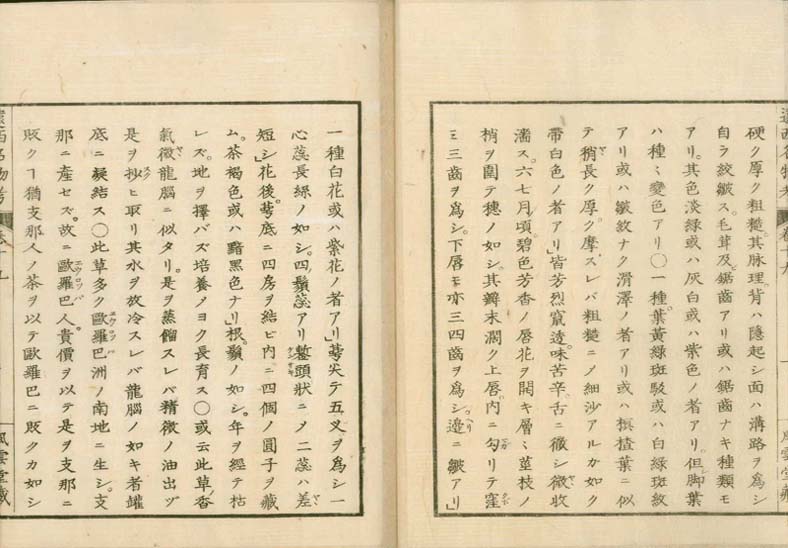 硬ク厚ク粗糙其脉理背ハ隠起シ面ハ溝路ヲ為シ
自ラ絞皺ス。毛茸及ビ鋸歯アリ或ハ鋸歯ナキ種類モ
アリ。其色淡緑或ハ灰白或ハ紫色ノ者アリ。但脚葉
ハ種々變色アリ〇一種葉黄緑斑駁或ハ白緑斑紋
アリ或ハ皺紋ナク滑澤ノ者アリ或ハ榠樝葉ニ似
テ稍長ク厚ク摩スレバ粗糙ニノ細沙アルガ如ク
帶白色ノ者アリ」皆芳烈竄透。味苦辛。舌ニ徴シ微收
濇ス。六七月ノ頃碧色芳香ノ唇花ヲ開キ層々莖枝ノ
梢ヲ圍テ穂ノ如シ。其瓣末濶ク上唇内ニ勾リテ窪
ミ三齒ヲ為シ。下唇モ亦三四齒ヲ為シ。邉ニ皺アリ」
一種白花或ハ紫花ノ者アリ」萼尖テ五叉ヲ為シ一
心蕊長綠ノ如シ。四鬚蕊アリ鼇頭狀ニノ二蕊ハ差
短シ」花後。萼底ニ四房ヲ結ビ内ニ四個ノ圓子ヲ藏
ム。茶褐色或ハ黯黑色ナリ」根。鬚ノ如シ。年ヲ經テ枯
レズ。地ヲ擇バズ培養ノヨク長育ス〇或云此草ノ香
氣微龍腦ニ似タリ。是ヲ蒸餾スレバ精微ノ油出ヅ
是ヲ抄ヒ取リ其水ヲ放冷スレバ龍腦ノ如キ者罐
底ニ凝結ス〇此草多ク歐羅巴洲ノ南地ニ生シ。支
那ニ産セズ。故ニ歐羅巴人。貴價ヲ以テ是ヲ支那ニ
販クヿ猶支那人ノ茶ヲ以テ歐羅巴ニ販クカ如シ
風雲堂藏